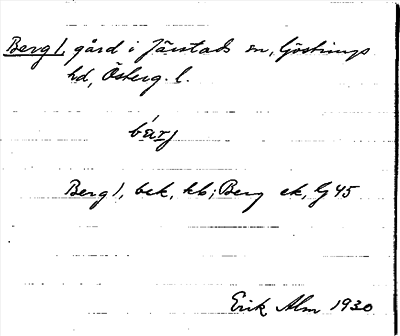 Berg 1, gård i Järstads sn, Göstrings
hd, Österg. l.
bärj
Berg 1, bek, kb; Berg ek, G 45
Erik Alm 1930